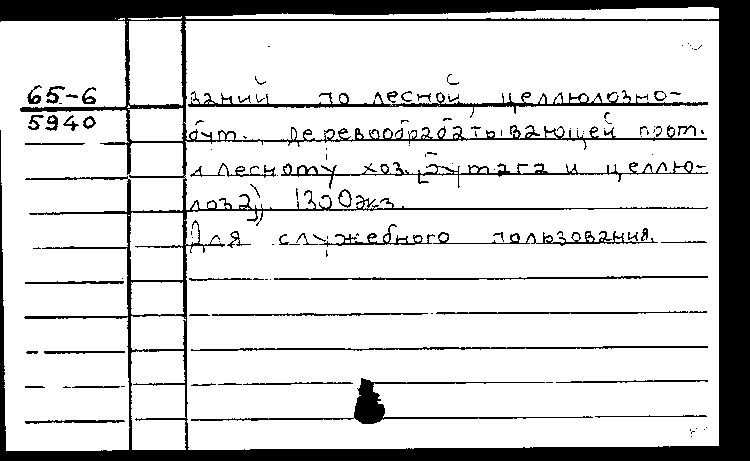 65-6
5940
ваний по лесной, целлюлозно-
бум., деревообрабатывающей пром.
и лесному хоз. [бумага и целлю-
лоза]). 1300экз.
Для служебного пользования.